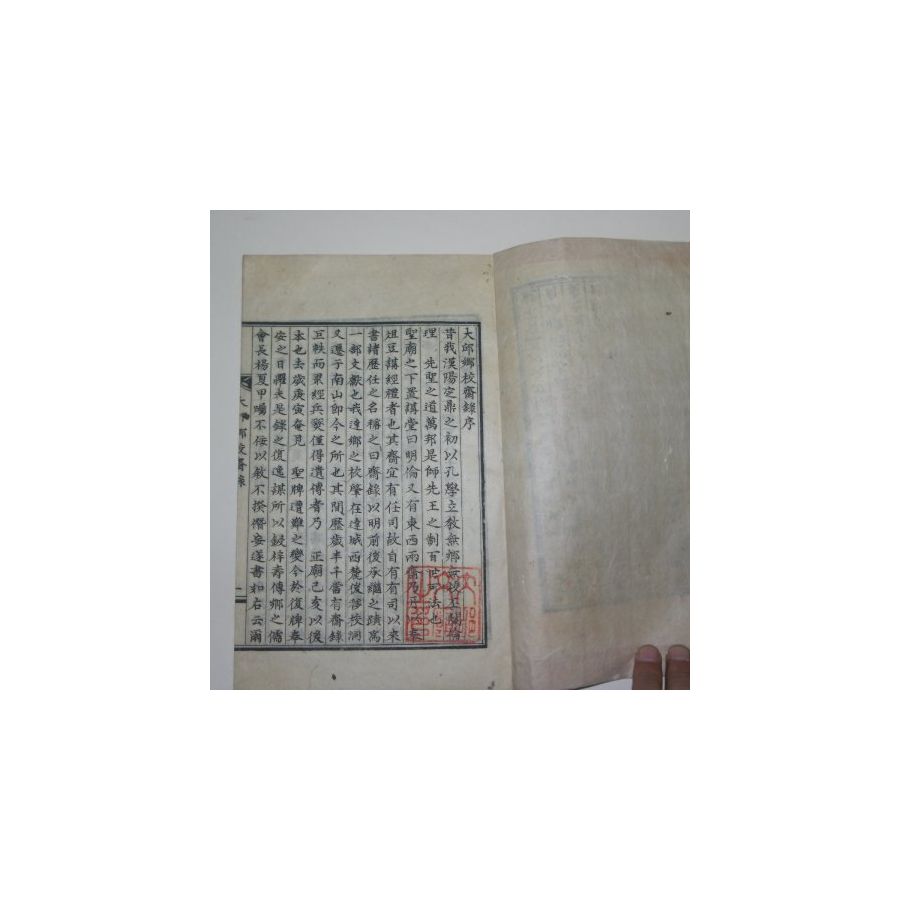 大邱鄉校齋錄序
昔我漢陽定鼎之初以孔學立敎無鄉無校丕闡倫
理 先聖之道萬邦是師先王之制百世可法也
聖廟之下置講堂曰明倫又有東西兩齋乃所以奉
俎豆講經禮者也其齋宜有任司故自有有司以來
書諸歷任之名稱之曰齋錄以明前後承繼之蹟寓
一部文獻也我達鄉之校肇在達城西麓後移校洞
又遷于南山卽今之所也其間歷歲半千當有齋錄
巨帙而累經兵燹僅得遺傳者乃 正廟己亥以後
本也去歲庚寅奄見 聖牌遭難之變今於復牌奉
安之日耀來是錄之復逸謀所以鋟梓壽傳鄉之儒
會長楊夏甲囑不佞以敘不揆僭妄遂書如右云爾
大邱鄉校齋錄
一